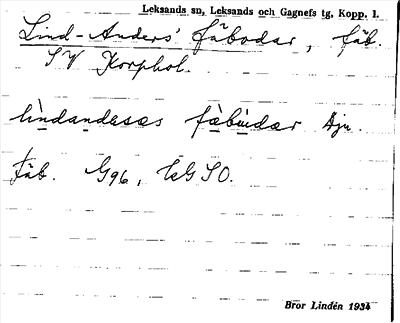 Leksands sn, Leksands och Gagnefs tg, Kopp. l.
Lind-Anders' fäbodar, fäb.
SV Korphol.
lìndandesas fàbùdar Dju.
Fäb. G96, EG SO.
Bror Lindén 1934